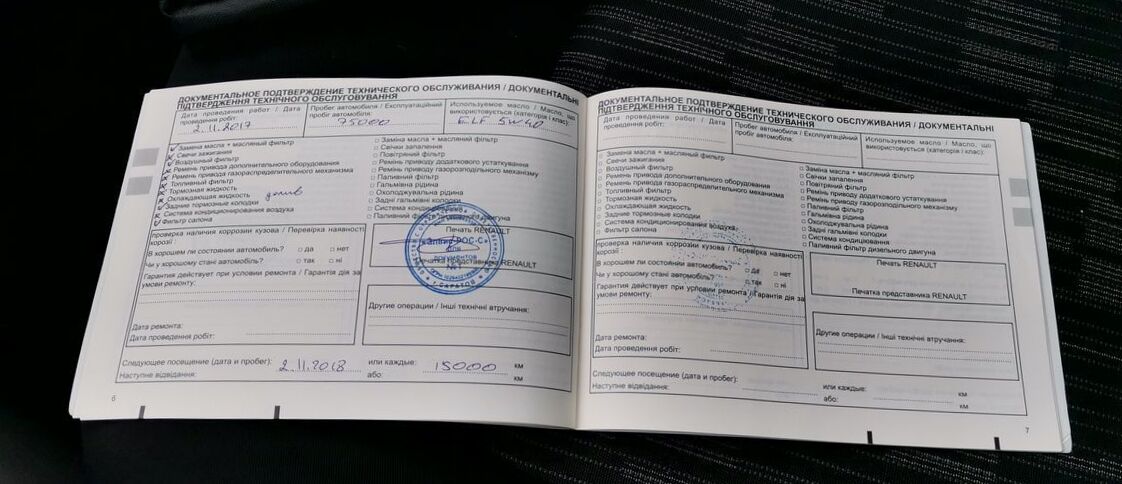 ДОКУМЕНТАЛЬНОЕ ПОДТВЕРЖДЕНИЕ ТЕХНИЧЕСКОГО ОБСЛУЖИВАНИЯ / ДОКУМЕНТАЛЬНІ
ПІДТВЕРДЖЕННЯ ТЕХНІЧНОГО ОБСЛУГОВУВАННЯ
Дата проведения работ / Дата проведення робіт:
2.11.2017
Пробег автомобиля / Експлуатаційний пробіг автомобіля:
75000
Используемое масло / Масло, що використовується (категорія і клас):
ELF 5W40
Замена масла + масляный фильтр
Свечи зажигания
Воздушный фильтр
Ремень привода дополнительного оборудования
Ремень привода газораспределительного механизма
Топливный фильтр
Тормозная жидкость
Охлаждающая жидкость долив
Задние тормозные колодки
Система кондиционирования воздуха
Фильтр салона
Заміна масла + масляний фільтр
Свічки запалення
Повітряний фільтр
Ремінь приводу додаткового устаткування
Ремінь приводу газорозподільного механізму
Паливний фільтр
Гальмівна рідина
Охолоджувальна рідина
Задні гальмівні колодки
Система
Паливний фільтр двигуна
проверка наличия коррозии кузова / Перевірка наявності
корозії
В хорошем ли состоянии автомобиль? да нет
Чи у хорошому стані автомобіль? так ні
Гарантия действует при условии ремонта / Гарантія дія за
умови ремонту:
Дата ремонта:
Дата проведення робіт:
Печать RENAULT
РОС-С»
ДОКУМЕНТОВ
САРАТОВ
Печатка представника RENAULT
Другие операции / Інші технічні втручання:
Следующее посещение (дата и пробег): 2.11.2018 или каждые: 15000 км
Наступне відвідання: або: км
6
ДОКУМЕНТАЛЬНОЕ ПОДТВЕРЖДЕНИЕ ТЕХНИЧЕСКОГО ОБСЛУЖИВАНИЯ / ДОКУМЕНТАЛЬНІ
ПІДТВЕРДЖЕННЯ ТЕХНІЧНОГО ОБСЛУГОВУВАННЯ
Дата проведения работ / Дата
проведення робіт:
Пробег автомобиля / Експлуатаційний
пробіг автомобіля:
Используемое масло / Масло, що
використовується (категорія і клас):
Замена масла + масляный фильтр
Свечи зажигания
Воздушный фильтр
Ремень привода дополнительного оборудования
Ремень привода газораспределительного механизма
Топливный фильтр
Тормозная жидкость
Охлаждающая жидкость
Задние тормозные колодки
Система кондиционирования воздуха
Фильтр салона
Заміна масла + масляний фільтр
Свічки запалення
Повітряний фільтр
Ремінь приводу додаткового устаткування
Ремінь приводу газорозподільного механізму
Паливний фільтр
Гальмівна рідина
Охолоджувальна рідина
Задні гальмівні колодки
Система кондиціювання
Паливний фільтр дизельного двигуна
проверка наличия коррозии кузова / Перевірка наявності
корозії
В хорошем ли состоянии автомобиль? да нет
Чи у хорошому стані автомобіль? так ні
Гарантия действует при условии ремонта / Гарантія дія за
умови ремонту:
Дата ремонта:
Дата проведення робіт:
Печать RENAULT
Печатка представника RENAULT
Другие операции / Інші технічні втручання:
Следующее посещение (дата и пробег): или каждые: км
Наступне відвідання: або: км
7